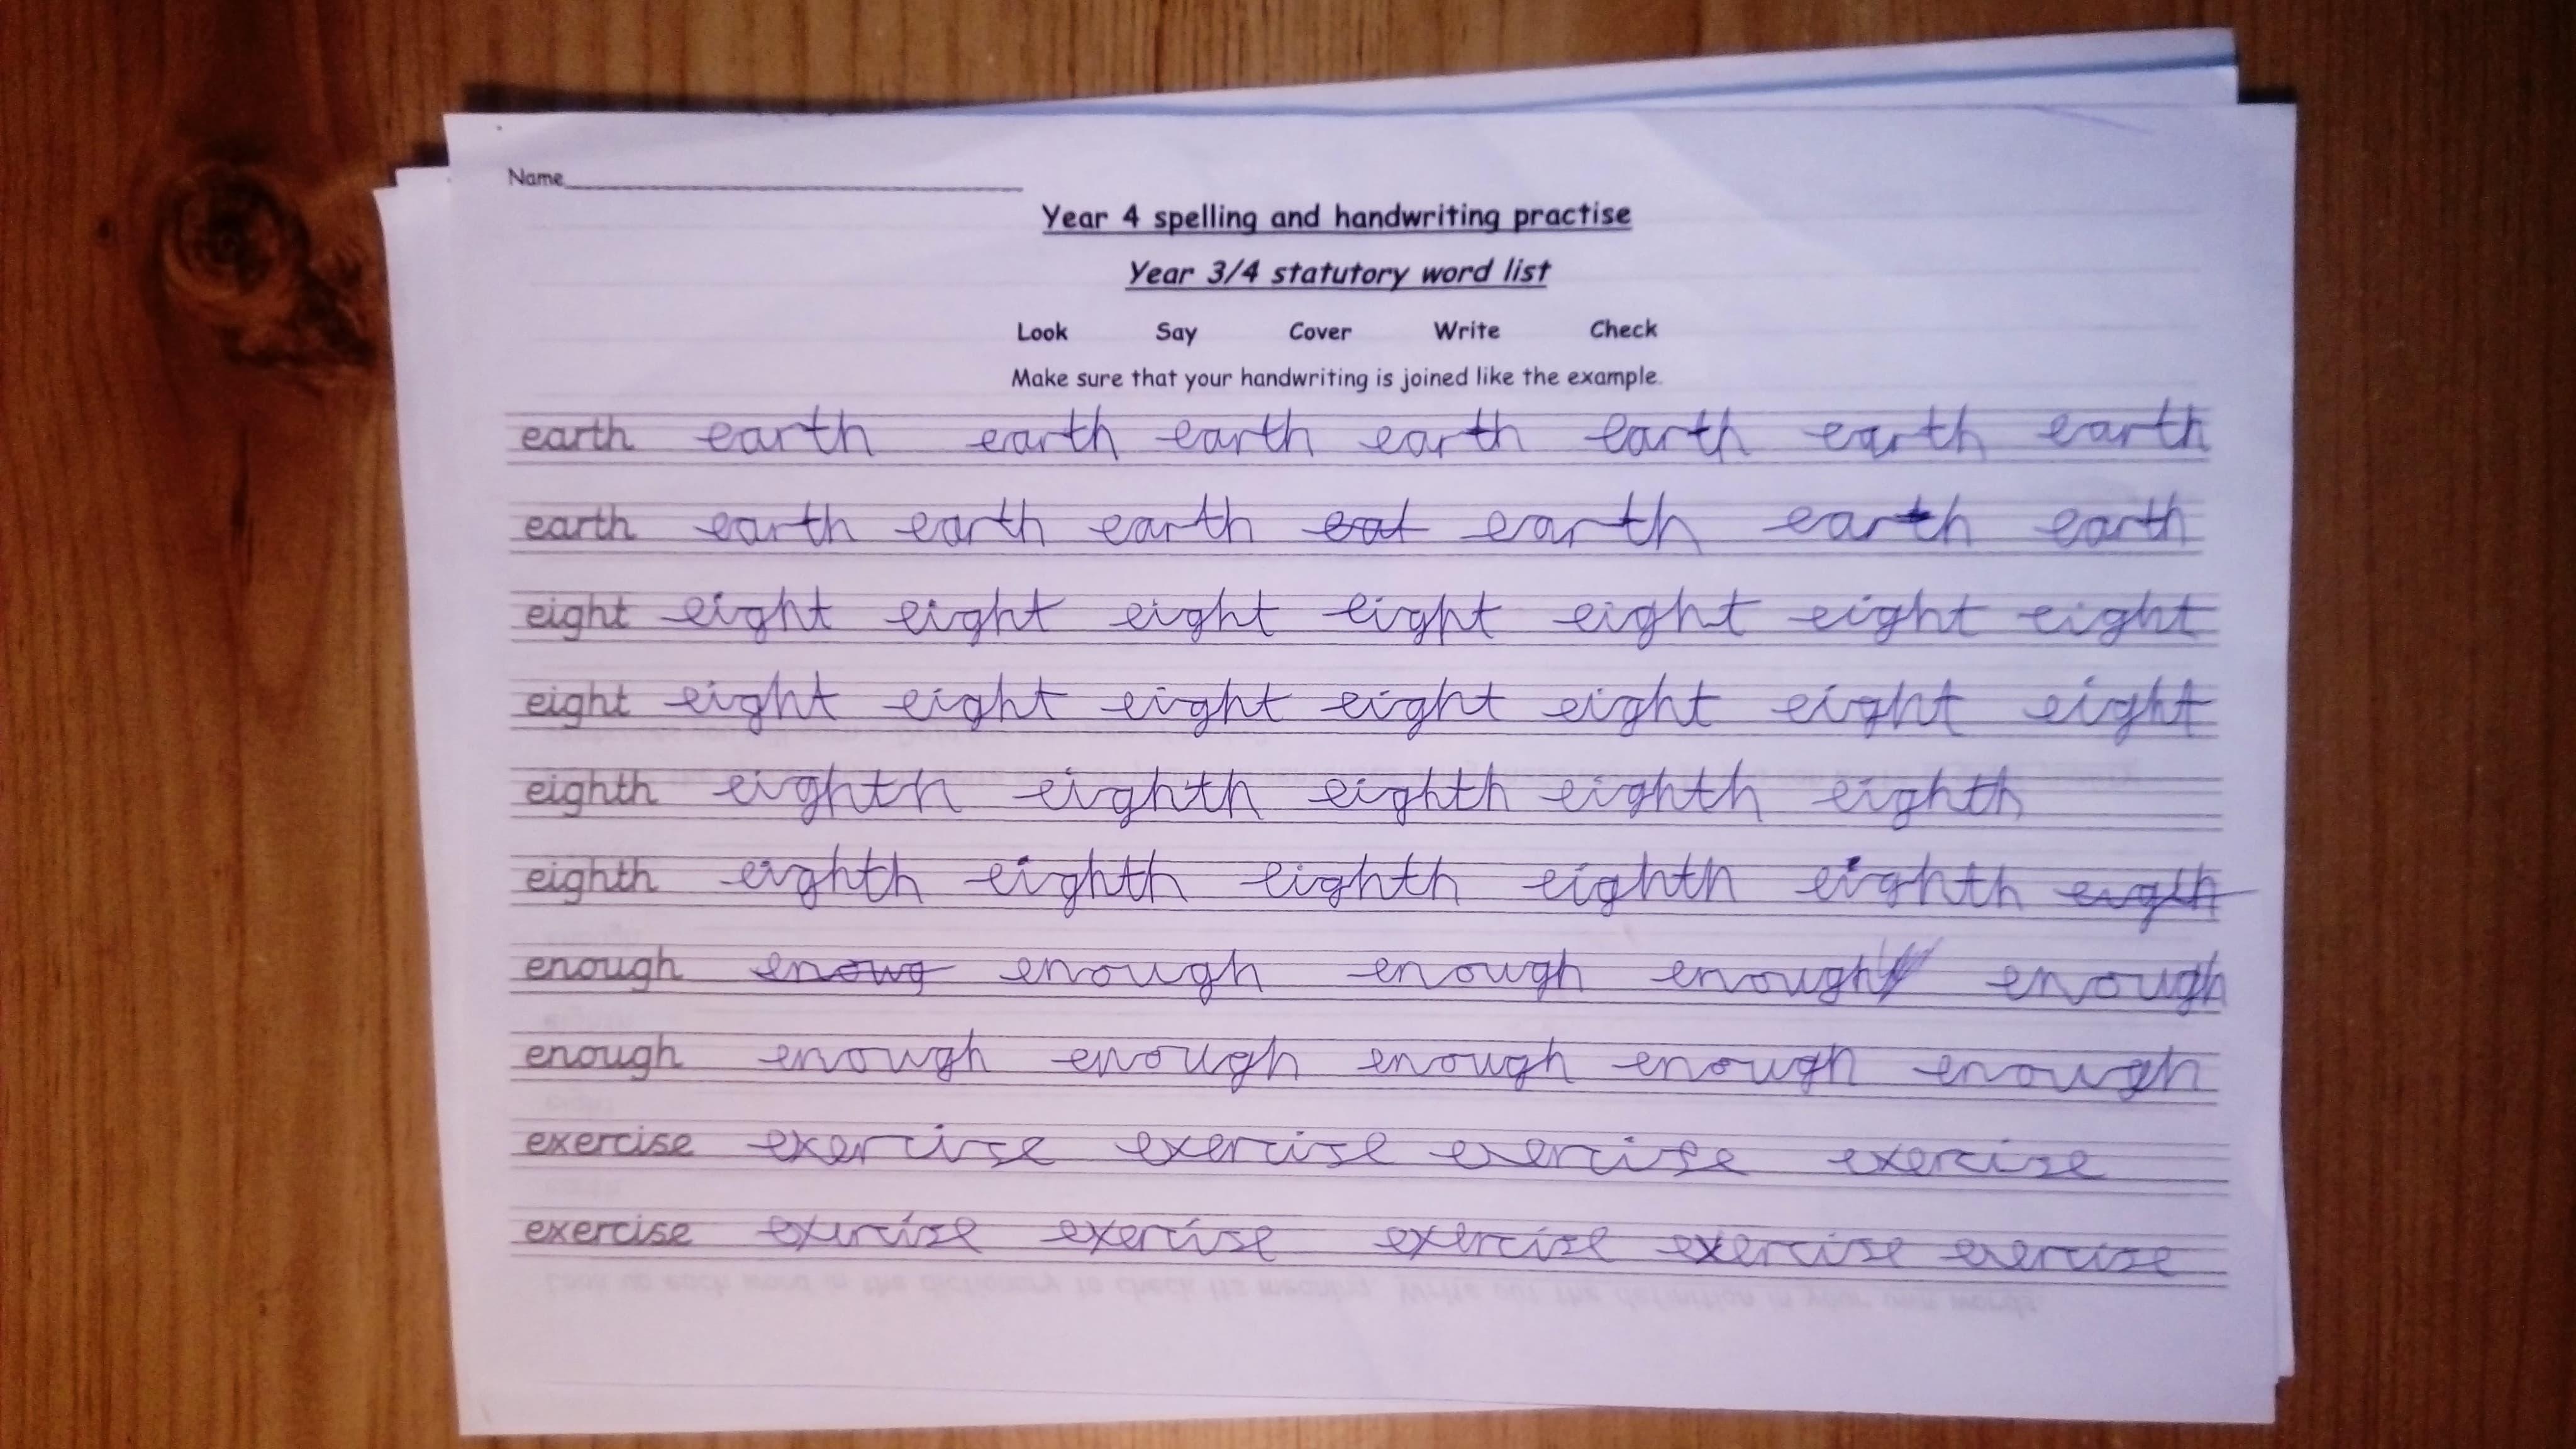 Name
Year 4 spelling and handwriting practise
Year 3/4 statutory word list
Look Say Cover Write Check
Make sure that your handwriting is joined like the example.
earth earth earth earth earth earth earth earth
earth earth earth earth eat earth earth earth
eight eight eight eight eight eight eight eight
eight eight eight eight eight eight eight eight
eighth eighth eighth eighth eighth eighth
eighth eighth eighth eighth eighth eighth eigth
enough enoug enough enough enough enough
enough enough enough enough enough enough
exercise exercise exercise exercise exercise
exercise exercise exercise exercise exercise exercise